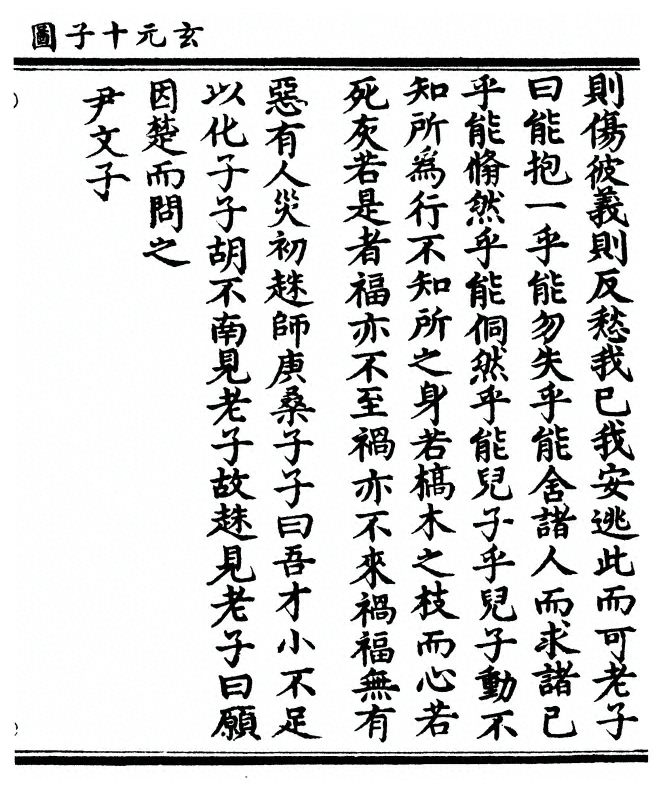 玄元十子圖
則傷彼義則反愁我已我安逃此而可老子
曰能抱一乎能勿失乎能舍諸人而求諸己
乎能翛然乎能侗然乎能兒子乎兒子動不
知所為行不知所之身若槁木之枝而心若
死灰若是者福亦不至禍亦不來禍福無有
惡有人災初趎師庚桑子子曰吾才小不足
以化子子胡不南見老子故趎見老子曰願
因楚而問之
尹文子